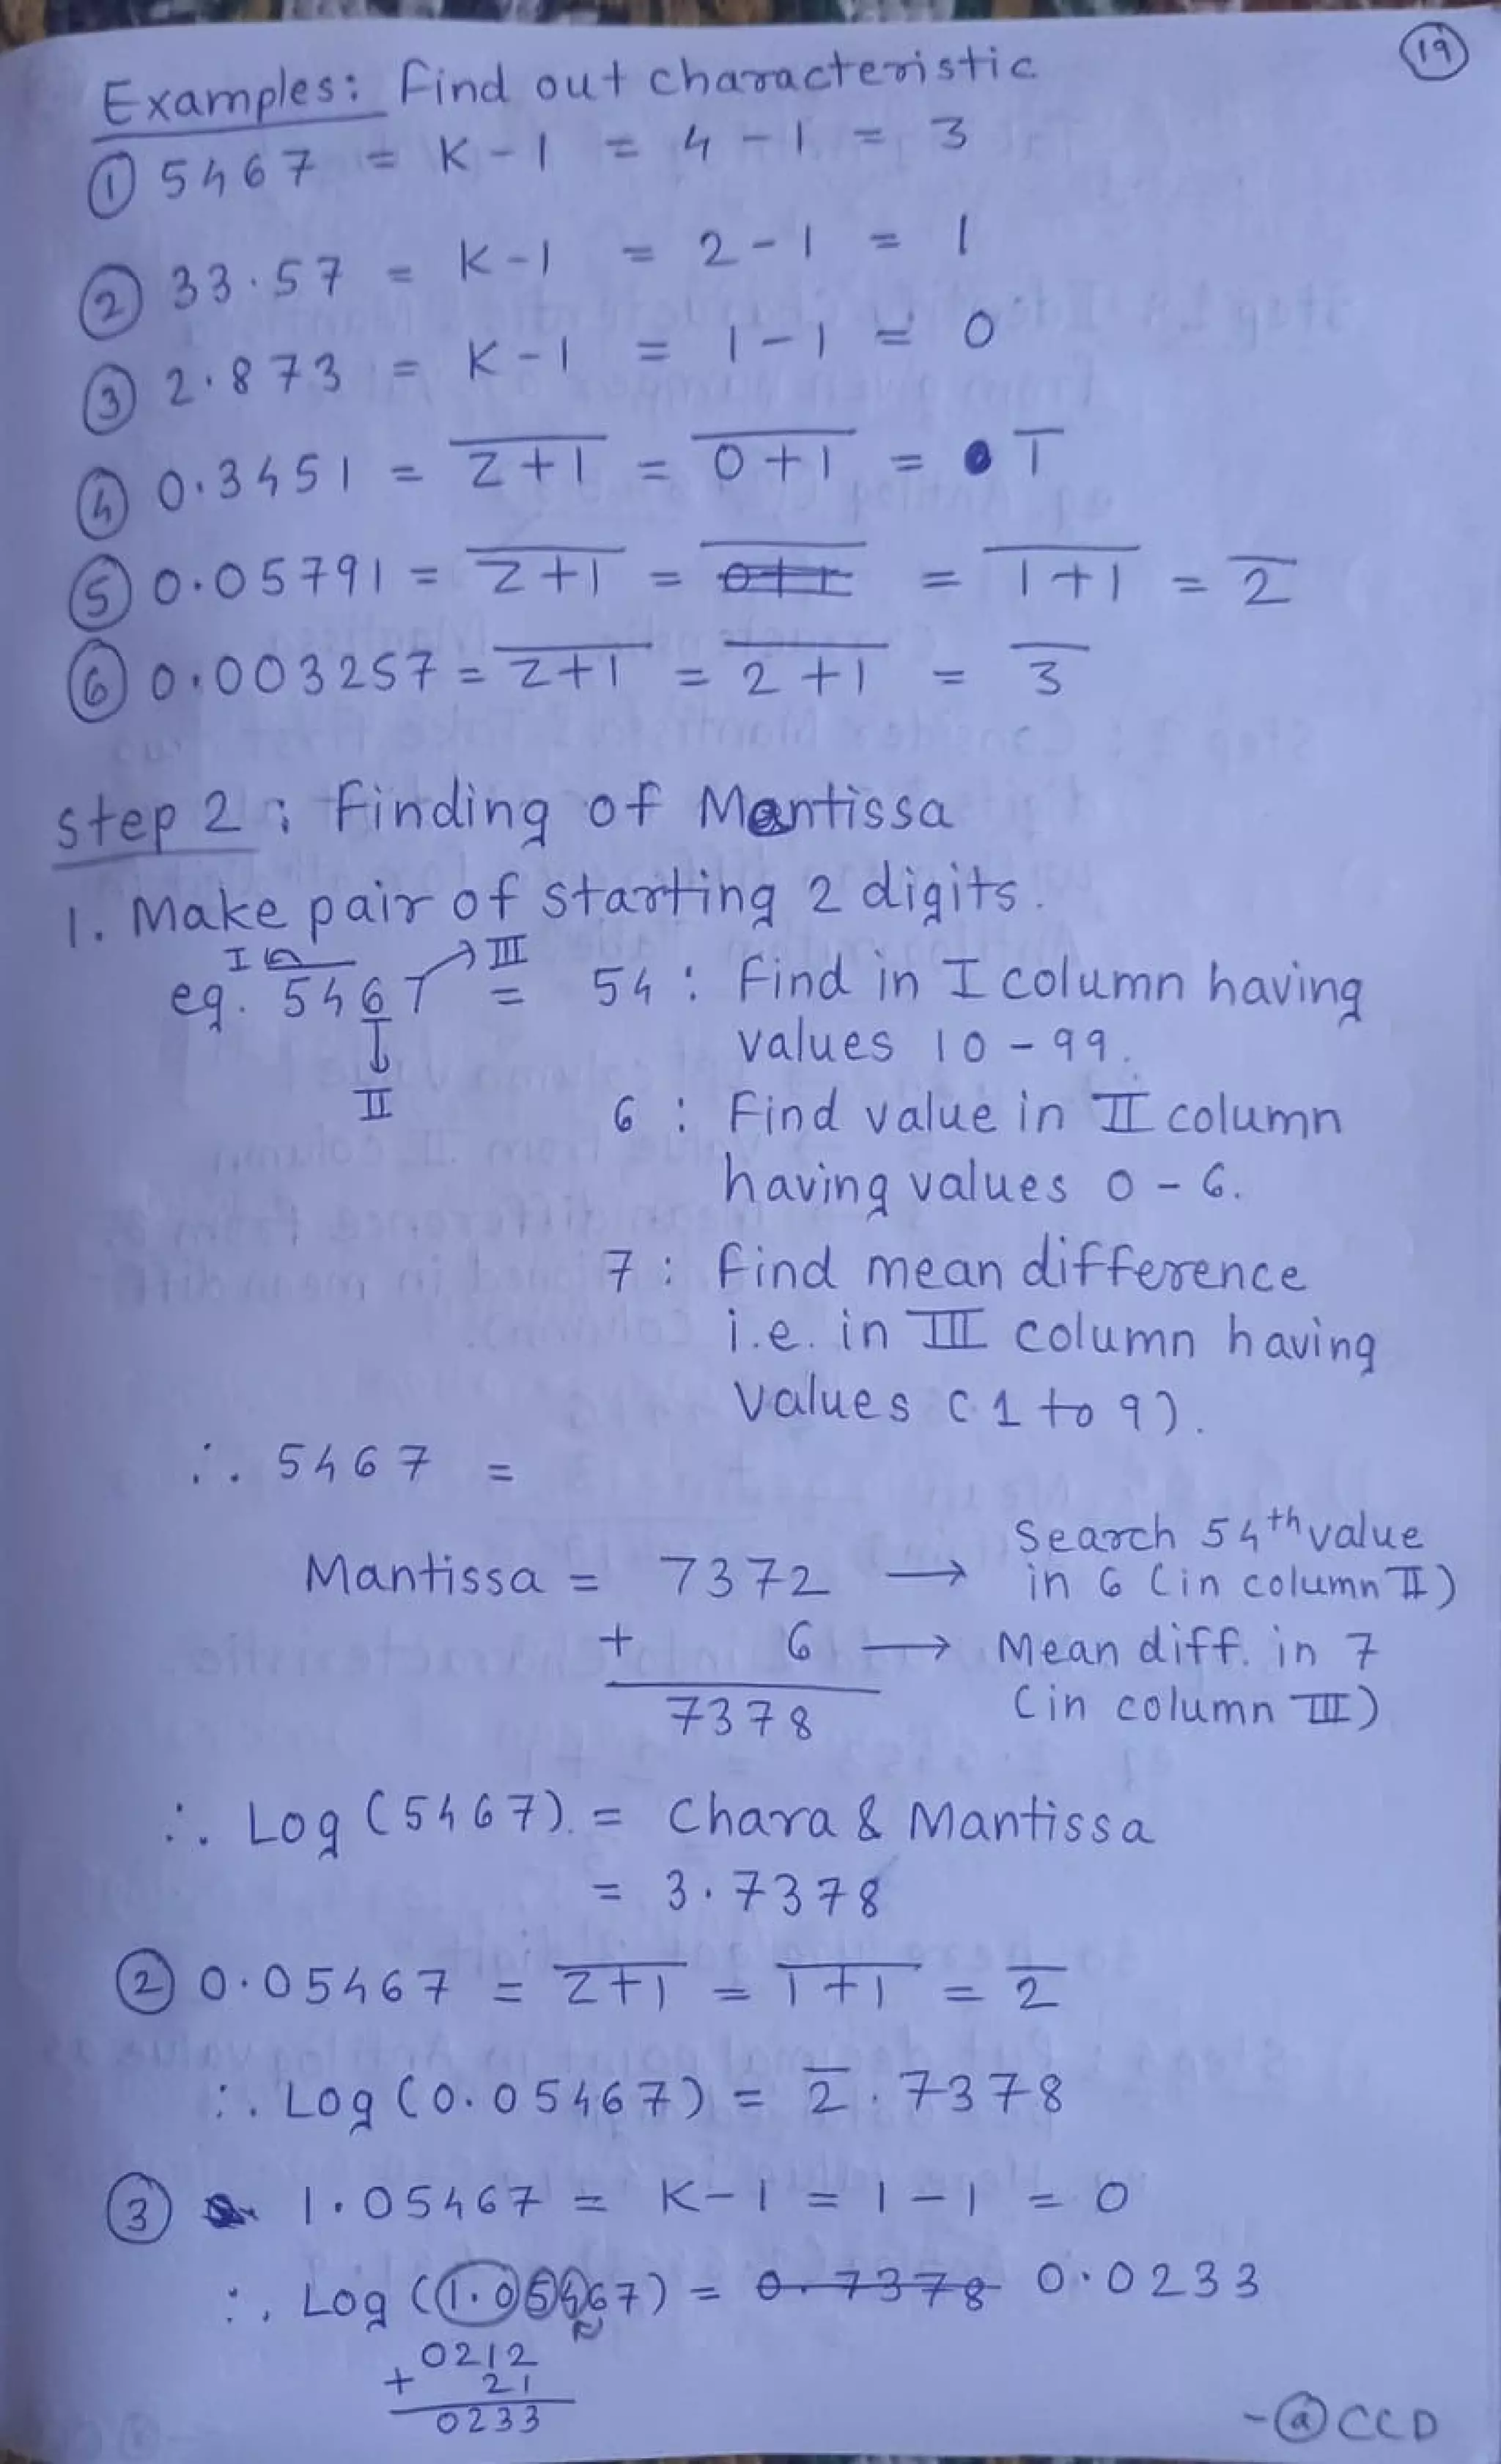 19
Examples: Find out characteristic
① 5467 = K-1 = 4-1 = 3
② 33.57 = K-1 = 2-1 = 1
③ 2.873 = K-1 = 1-1 = 0
④ 0.3451 = \overline{Z+1} = \overline{0+1} = \overline{1}
⑤ 0.05791 = \overline{Z+1} = \overline{0+1} = \overline{1+1} = \overline{2}
⑥ 0.003257 = \overline{Z+1} = \overline{2+1} = \overline{3}
Step 2 : Finding of Mantissa
1. Make pair of starting 2 digits.
I III
eg. 5467 = 54 : Find in I column having
values 10 - 99.
II
6 : Find value in II column
having values 0 - 6.
7 : Find mean difference
i.e. in III column having
values (1 to 9).
∴ 5467 =
Mantissa = 7372 → Search 54th value
in 6 (in column II)
+ 6 → Mean diff. in 7
(in column III)
7378
∴ Log (5467) = Chara & Mantissa
= 3.7378
② 0.05467 = \overline{Z+1} = \overline{1+1} = \overline{2}
∴ Log (0.05467) = \overline{2}.7378
③ 1.05467 = K-1 = 1-1 = 0
∴ Log (1.05467) = 0.7378 0.0233
0212
+ 21
0233
-@CCD